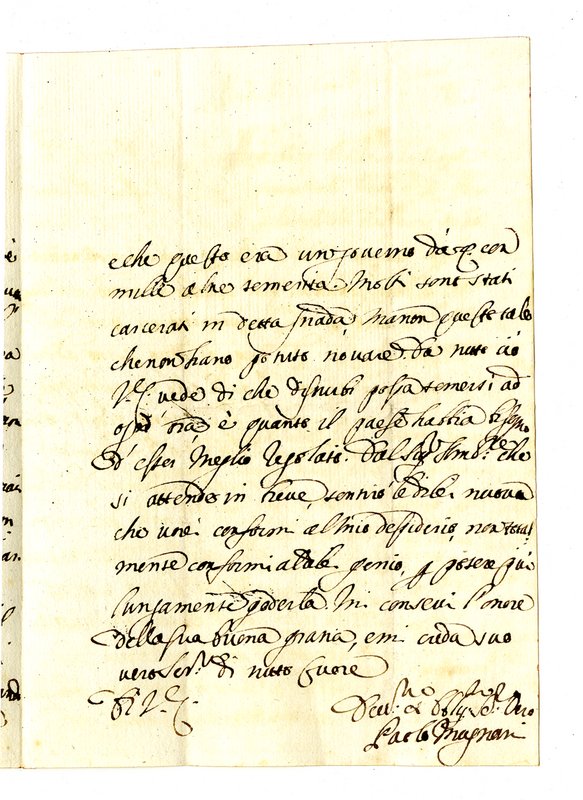 e che questo era un governo da q. con
mille altre temerità. Molti sono stati
carcerati in detta strada, ma non queste tale
che non hano potuto trovare. Da tutto ciò
V.S. vede di che disturbi possa temersi ad
ogni ora, è quanto il paese habbia bisogno
d'esser meglio regolato. Dal Sig.r che
si attende in breve, sentirò le di lei nuove
che vorrei conformi al mio desiderio, non total
mente conformi al di lei genio, p. potere qui
lungamente goderla. Mi conservi l'onore
della sua buona grazia, e mi creda suo
vero Ser.re di tutto cuore
Di V.S.
Dev.mo et Obl.mo Se.r Vero
Paolo Magnani